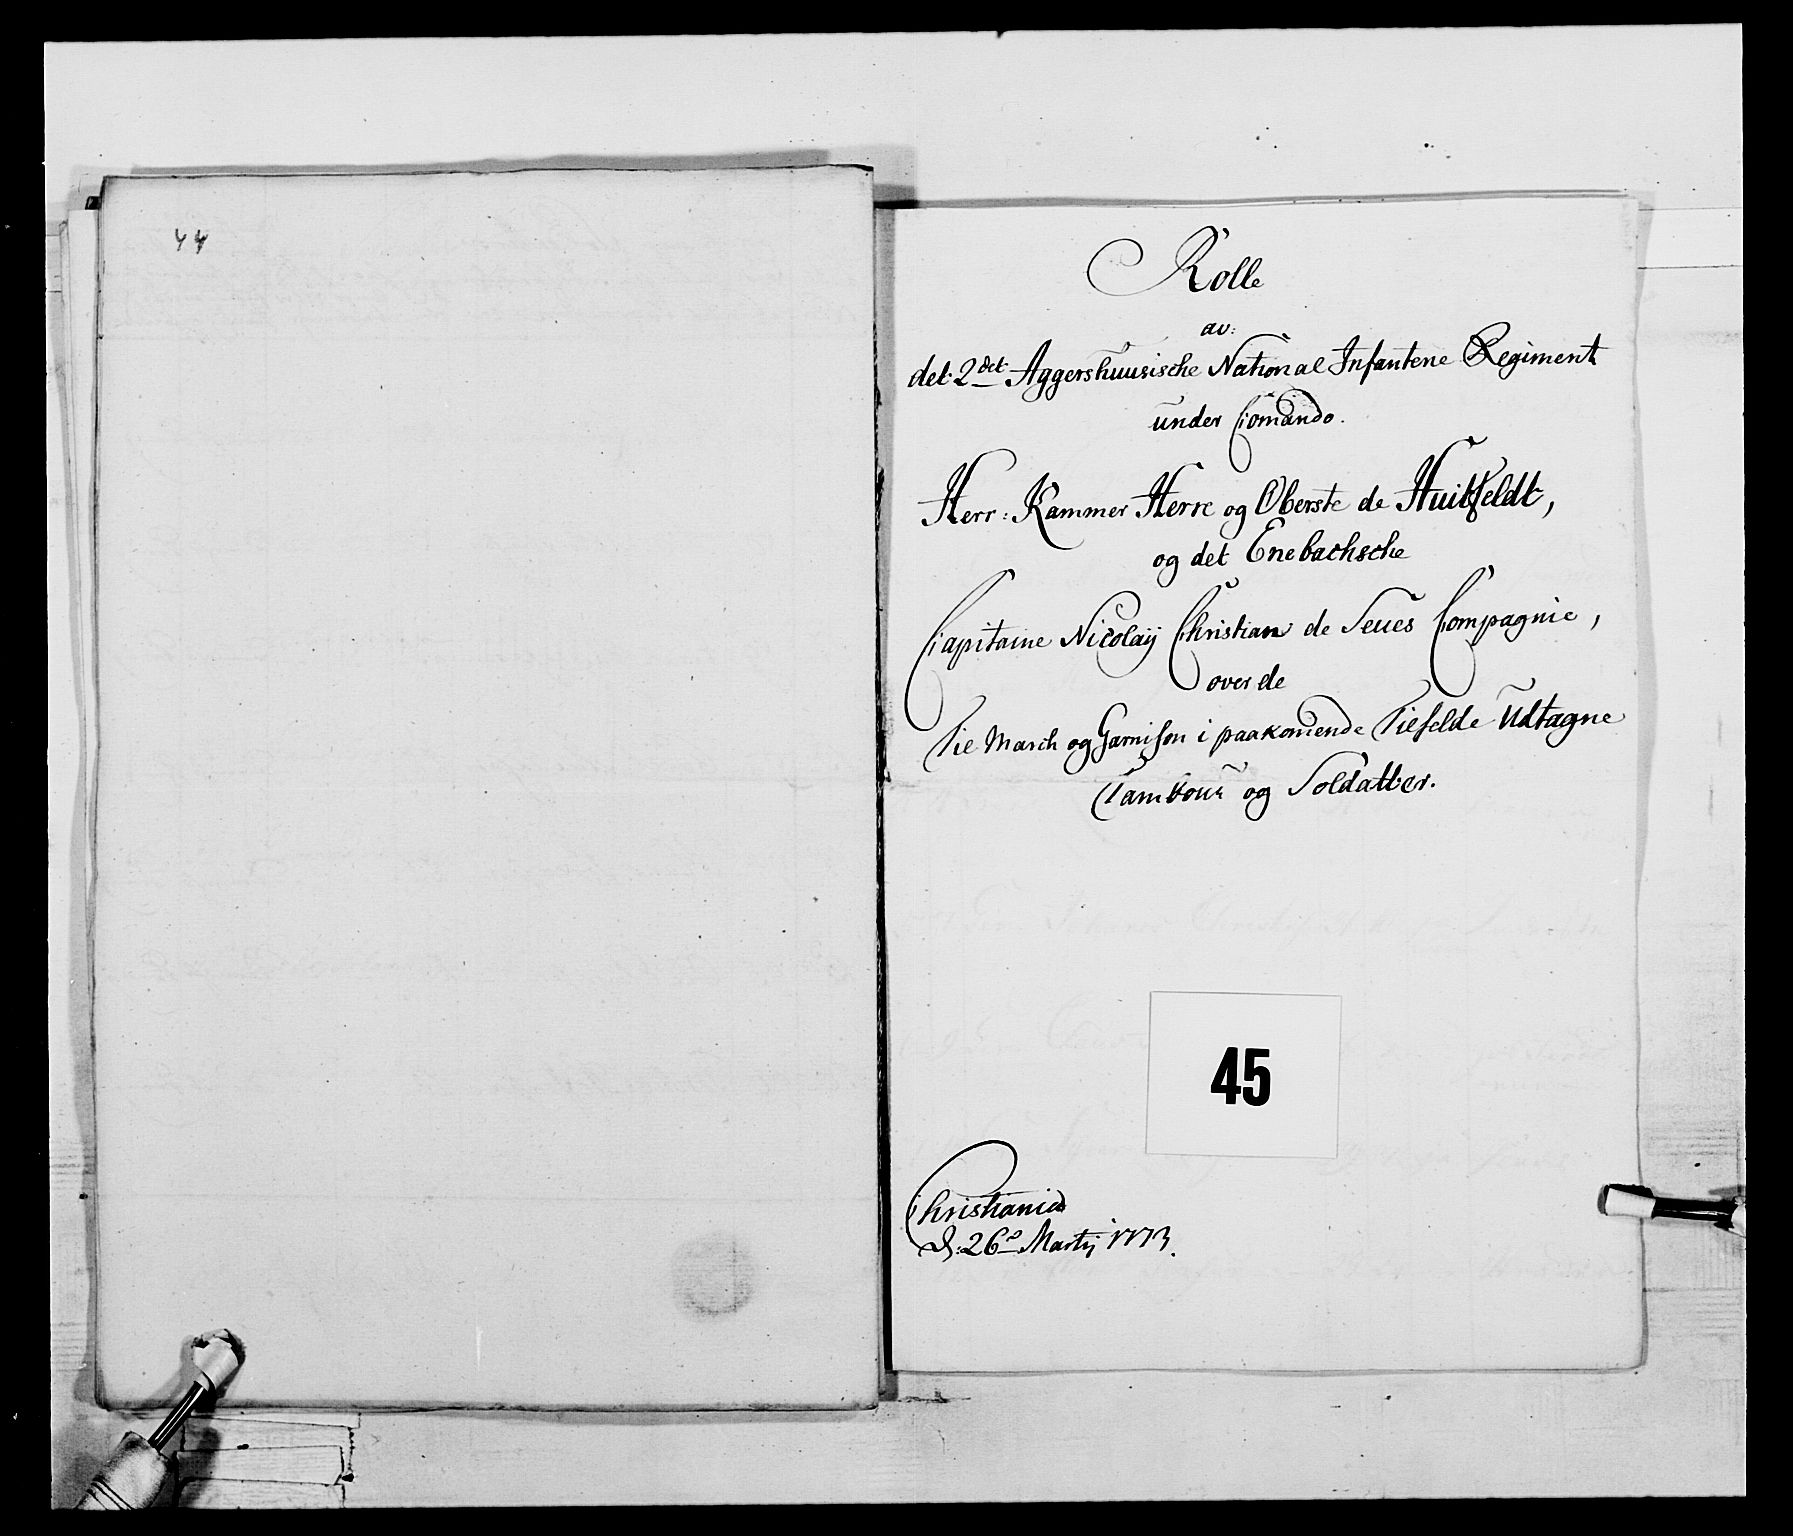 44
Rolle
av:
det 2det Aggershuusische National Infanterie Regiment
under Comando.
Herr: Kammer Herre og Oberste de Huitfeldt,
og det Enebachsche
Capitaine Nicolaÿ Christian de Seues Compagnie,
over de
Til March og Garnison i paakomende Tilfelde Udtagne
Tambour og Soldatter.
45
Christania
d: 26d Martÿ 1773.